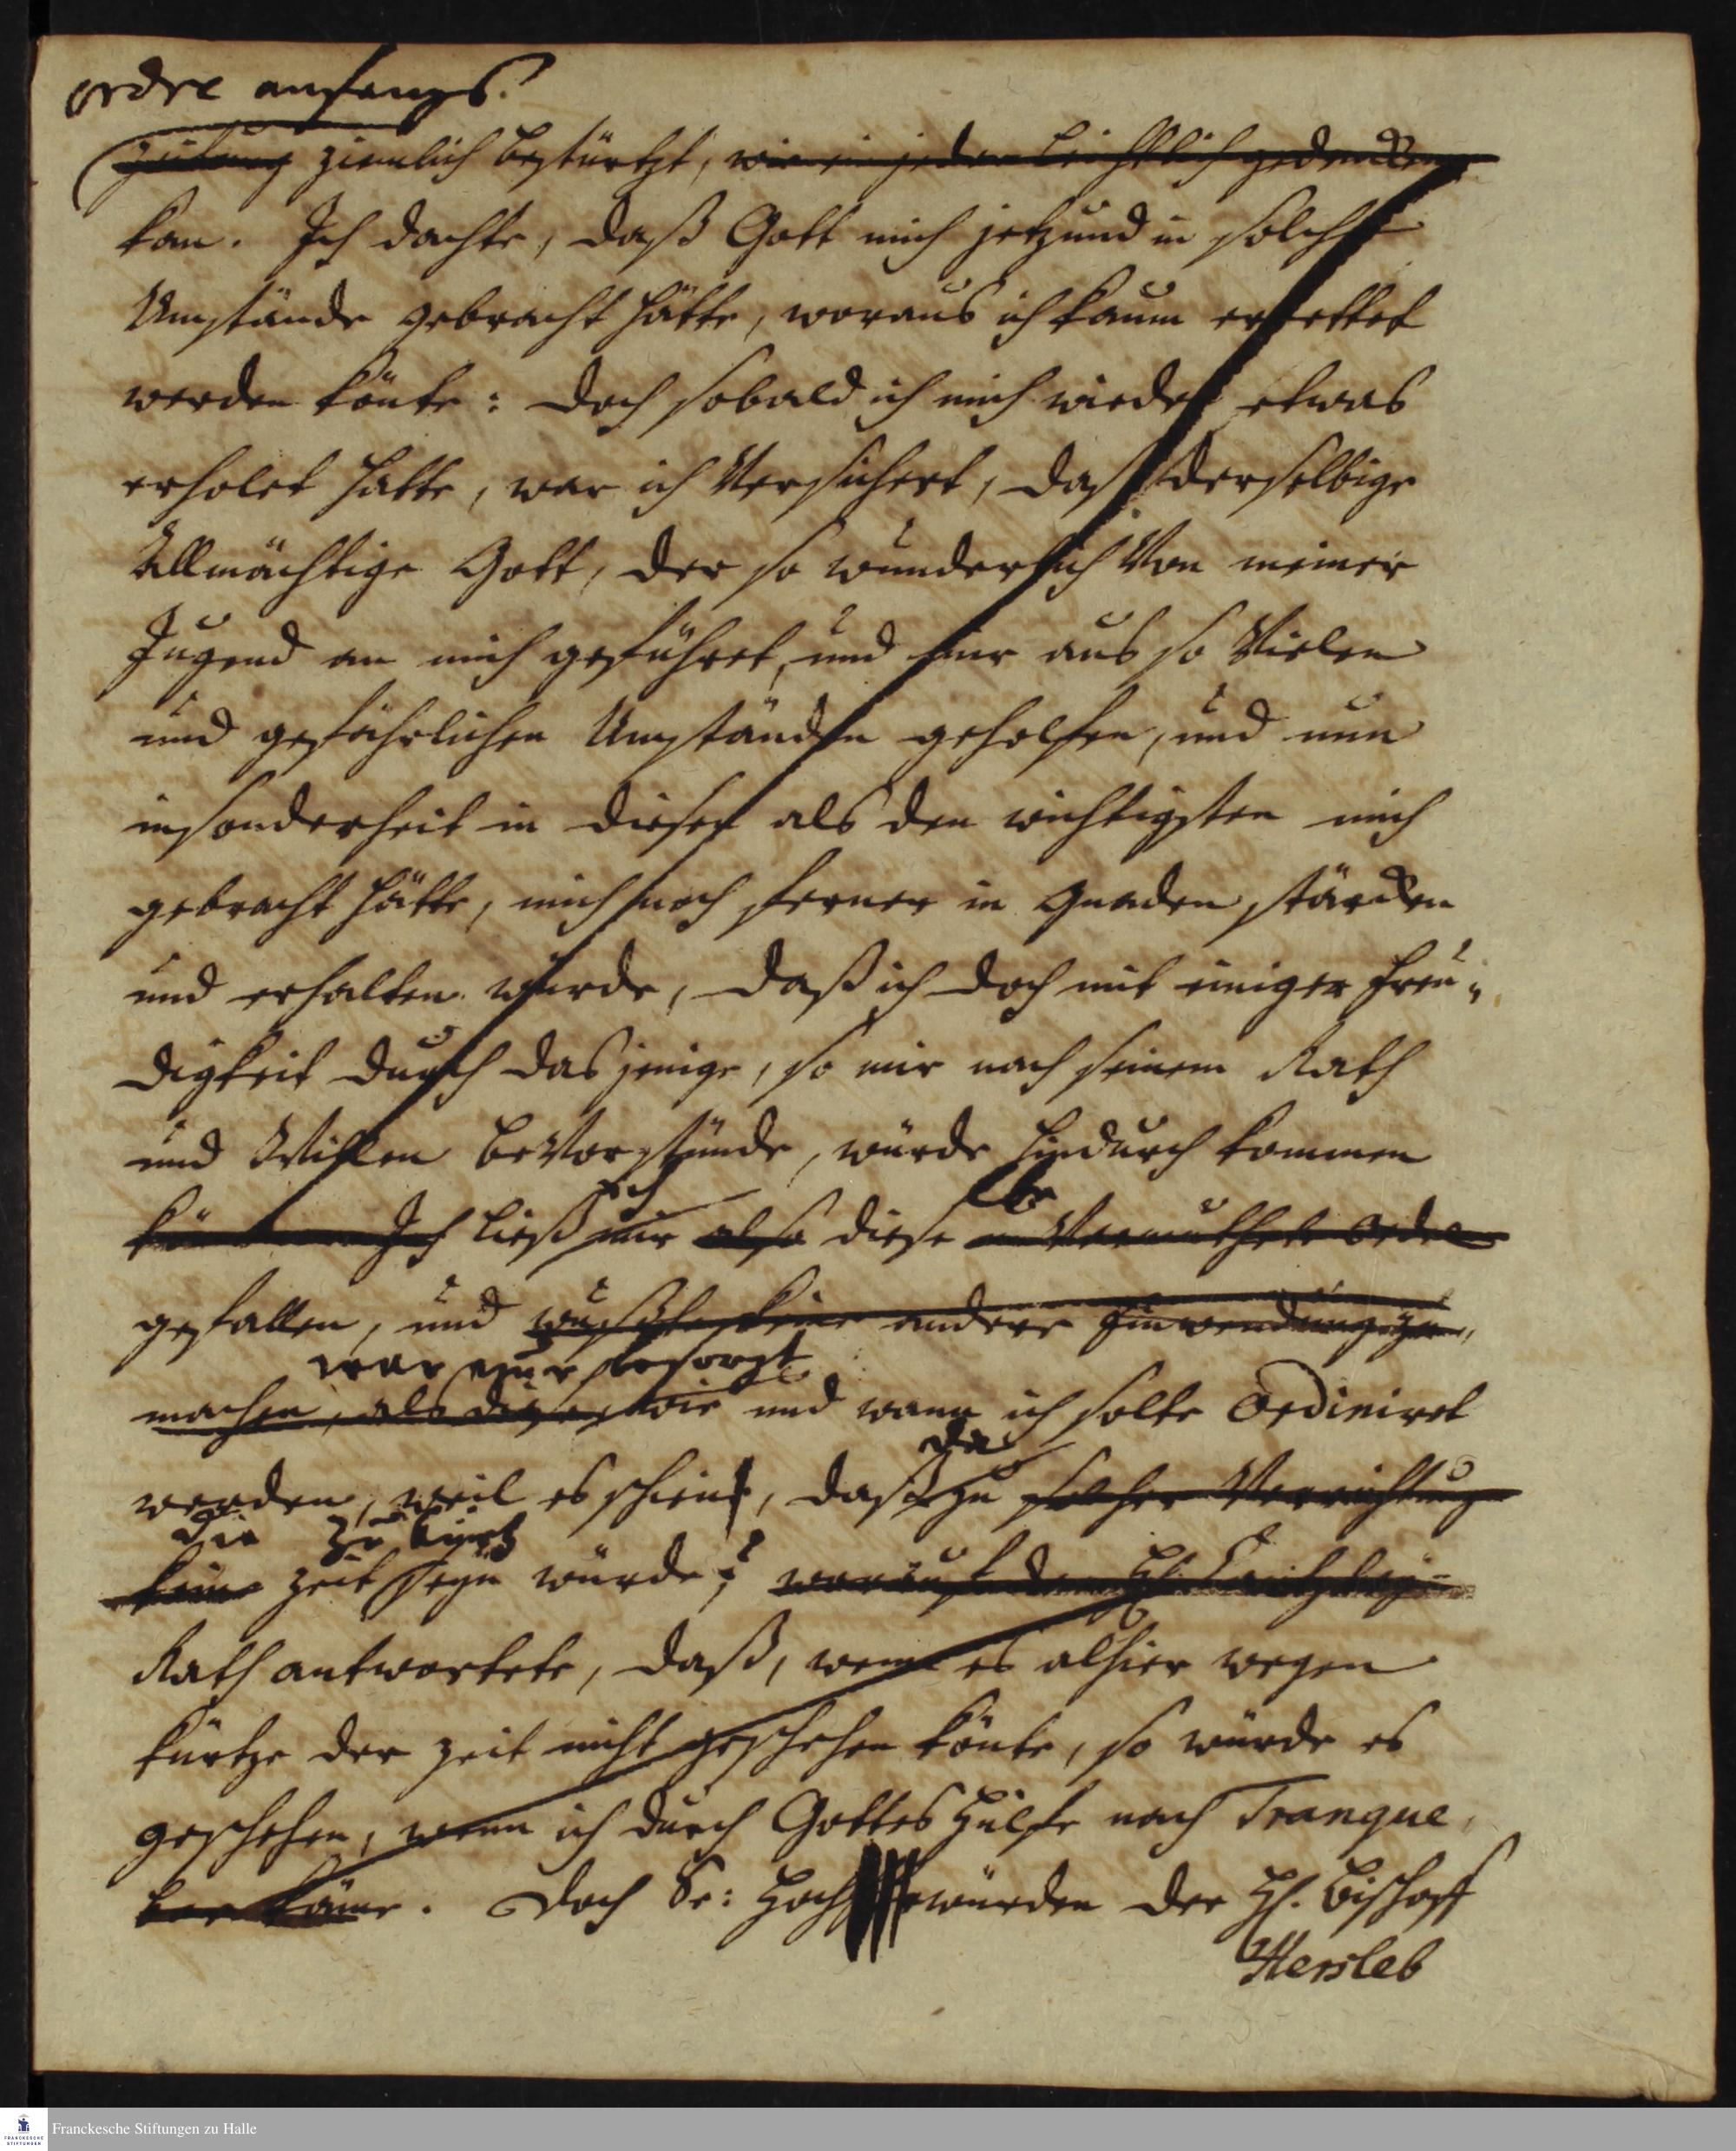 ordre anfangs.
Zeitung ziemlich bestürtzt, wie ein jeder leichtlich gedencken
kan. Ich dachte, daß Gott mich jetzund in solche
Umstände gebracht hätte, woraus ich kaum errettet
werden könte: doch sobald ich mich wieder etwas
erholet hatte, war ich versichert, daß derselbige
Allmächtige Gott, der so wunderlich von meiner
Jugend an mich geführet, und mir aus so vielen
und gefährlichen Umständen geholfen, und nun
insonderheit in diesen als den wichtigsten mich
gebracht hätte, mich noch ferner in Gnaden stärcken
und erhalten würde, daß ich doch mit einiger Freu-
digkeit durch dasjenige, so mir nach seinem Rath
und Willen bevorstünde, würde hindurch kommen
ich lbe
können. Ich ließ mir also diese unvermuthete Ordre
gefallen, und wußte keine andere Einwendung zu
war nur besorgt
machen, als diese, wie und wann ich solte Ordiniret
da
werden, weil es schien, daß zu solcher Verrichtung
die zu kurtz
keine Zeit seyn würde; worauf der H. Canzeley-
Rath antwortete, daß, wenn es alhier wegen
kürtze der Zeit nicht geschehen könte, so würde es
geschehen, wenn ich durch Gottes Hülfe nach Tranque
bar käme. Doch Sr: Hoch würden der H. Bischoff
Hersleb
Franckesche Stiftungen zu Halle
FRANCKESCHE
STIFTUNGEN